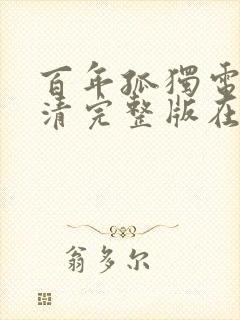 百年孤獨電
清完整版在
翁多尔